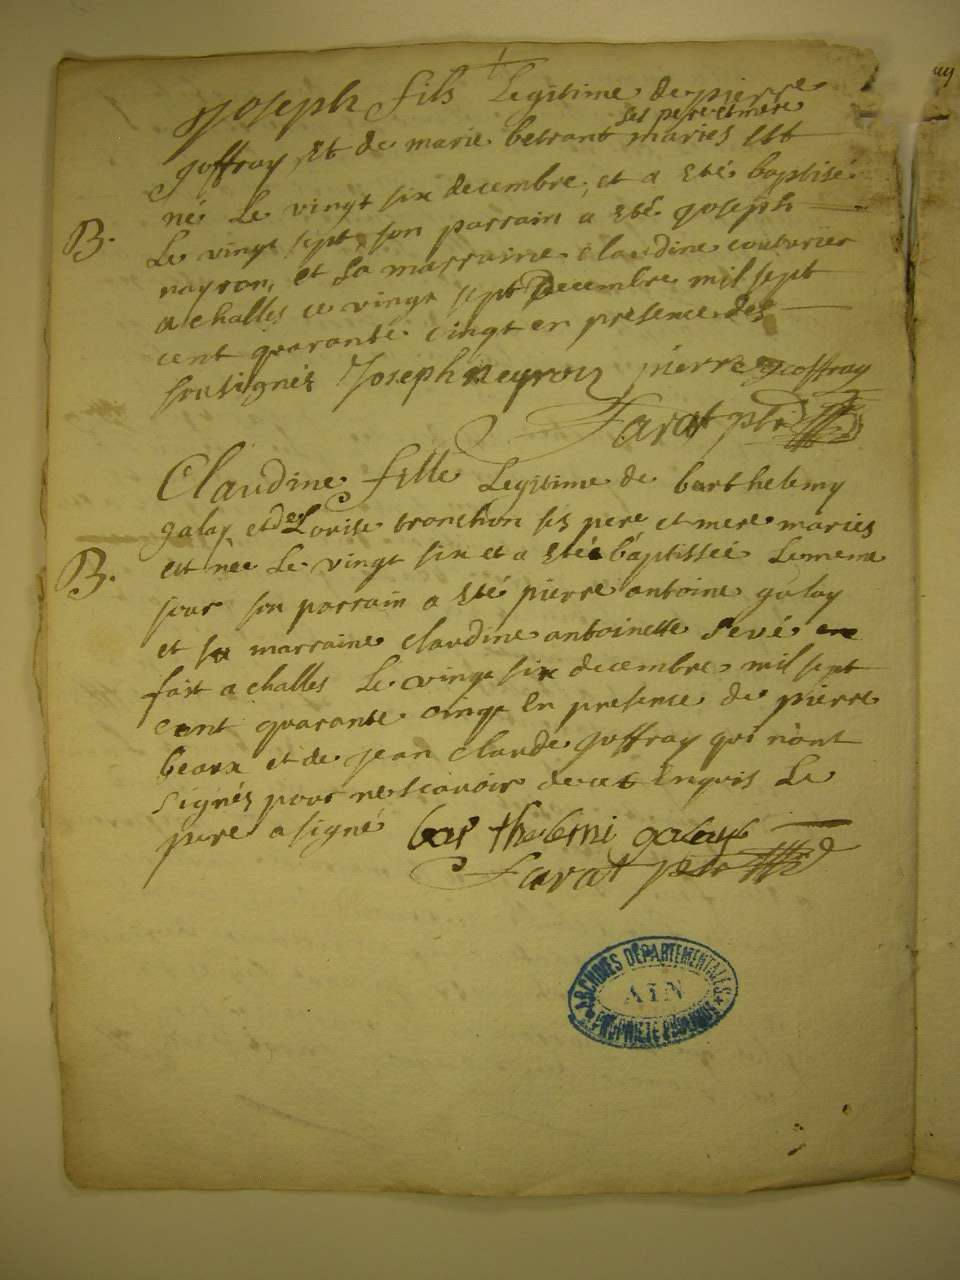 Joseph fils Legitime de pierre
ses pere et mere
goffray, Et de marie betrant mariés Est
né Le vingt six decembre, et a Eté baptisé
B.
Le vingt sept, son parrain a Eté joseph
nayron, et sa marraine claudine couturier
a challes ce vingt sept Decembre mil sept
cent quarante cingt en presence des
sousignés Joseph neyron pierre goffray
Farat ptr
Claudine fille Legitime de barthelemy
galay et de Louise tronchon ses pere et mere mariés
B.
est née Le vingt six et a Eté baptissée Lememe
jour son parrain a Eté pierre antoine galay
et sa marraine claudine antoinette sevé
fait a challes Le vingt six decembre mil sept
cent quarante cinq En presence de pierre
beaux et de jean claude goffray qui n'ont
signés pour ne scavoir de ce Enquis Le
pere a signé barthelemi galay
Farat ptr
ARCHIVES DÉPARTEMENTALES
AIN
PROPRIÉTÉ PUBLIQUE